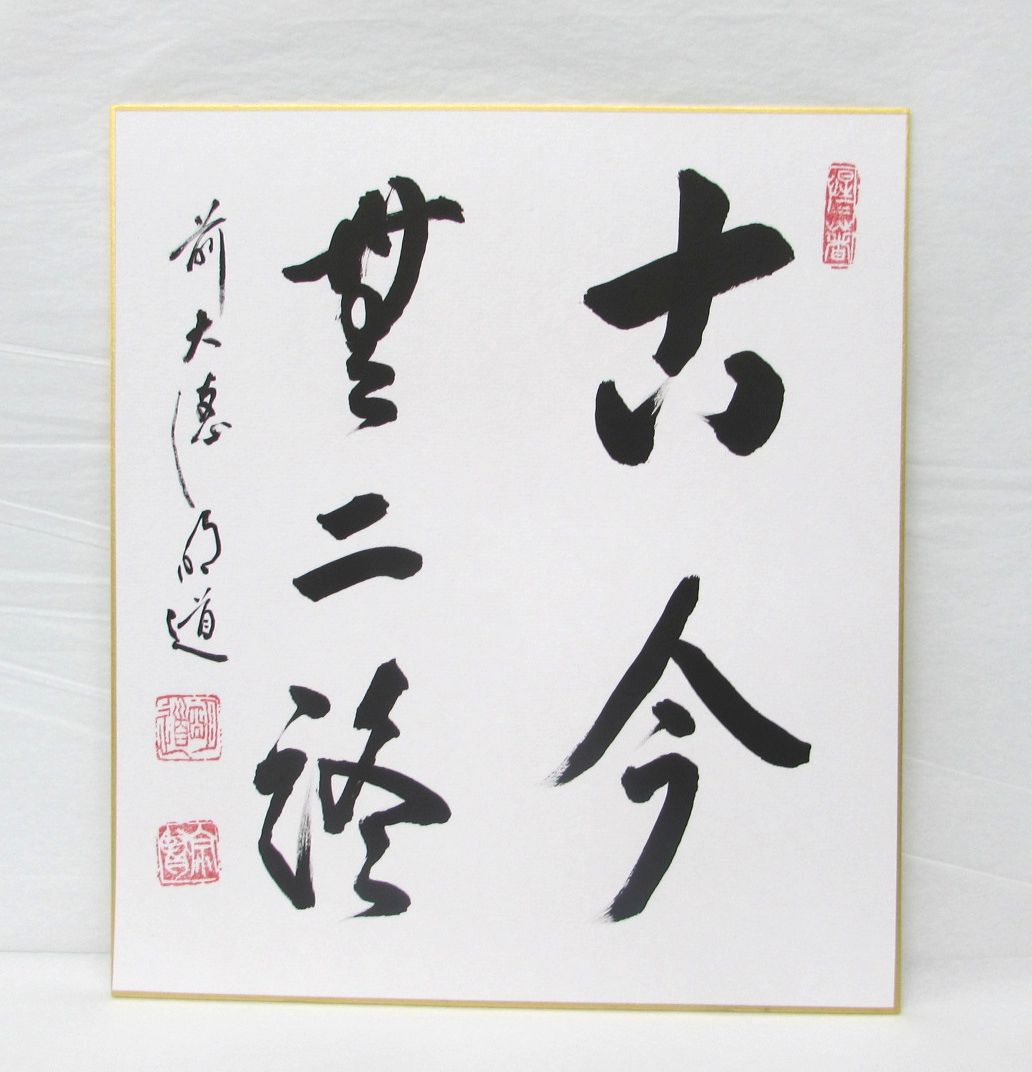 古今
無二路
前大徳明道